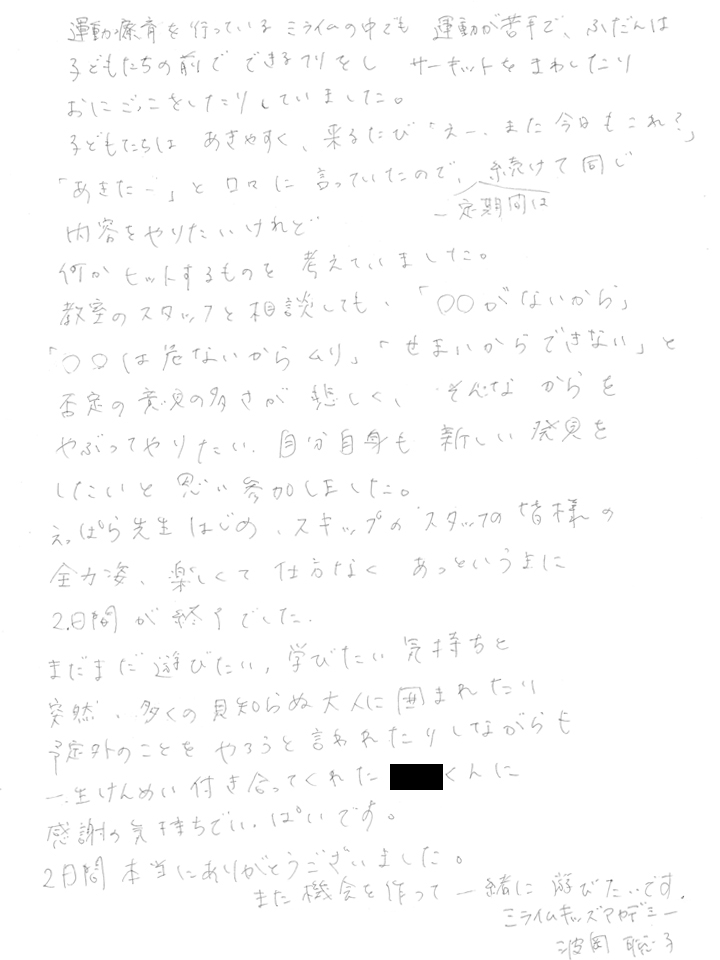 運動療育を行っているミライムの中でも 運動が苦手で、ふだんは
子どもたちの前で できるフリをし サーキットをまわしたり
おにごっこをしたりしていました。
子どもたちは あきやすく、来るたび「えー、また今日もこれ？」
「あきたー」と口々に言っていたので、続けて同じ
一定期間は
内容をやりたいけれど
何かヒットするものを 考えていました。
教室のスタッフと相談しても、「〇〇がないから」
「〇〇は危ないからムリ」「せまいからできない」と
否定の意見の多さが 悲しく、 そんな からを
やぶってやりたい、自分自身も 新しい発見を
したいと思い参加しました。
えっぱら先生はじめ、スキップのスタッフの皆様の
全力姿、楽しくて 仕方なく あっというまに
2日間が終了でした。
まだまだ遊びたい，学びたい気持ちと
突然、多くの見知らぬ大人に囲まれたり
予定外のことを やろうと言われたりしながらも
一生けんめい付き合ってくれた くんに
感謝の気持ちでいっぱいです。
2日間本当にありがとうございました。
また機会を作って一緒に遊びたいです。
ミライムキッズアカデミー
波岡 聡子